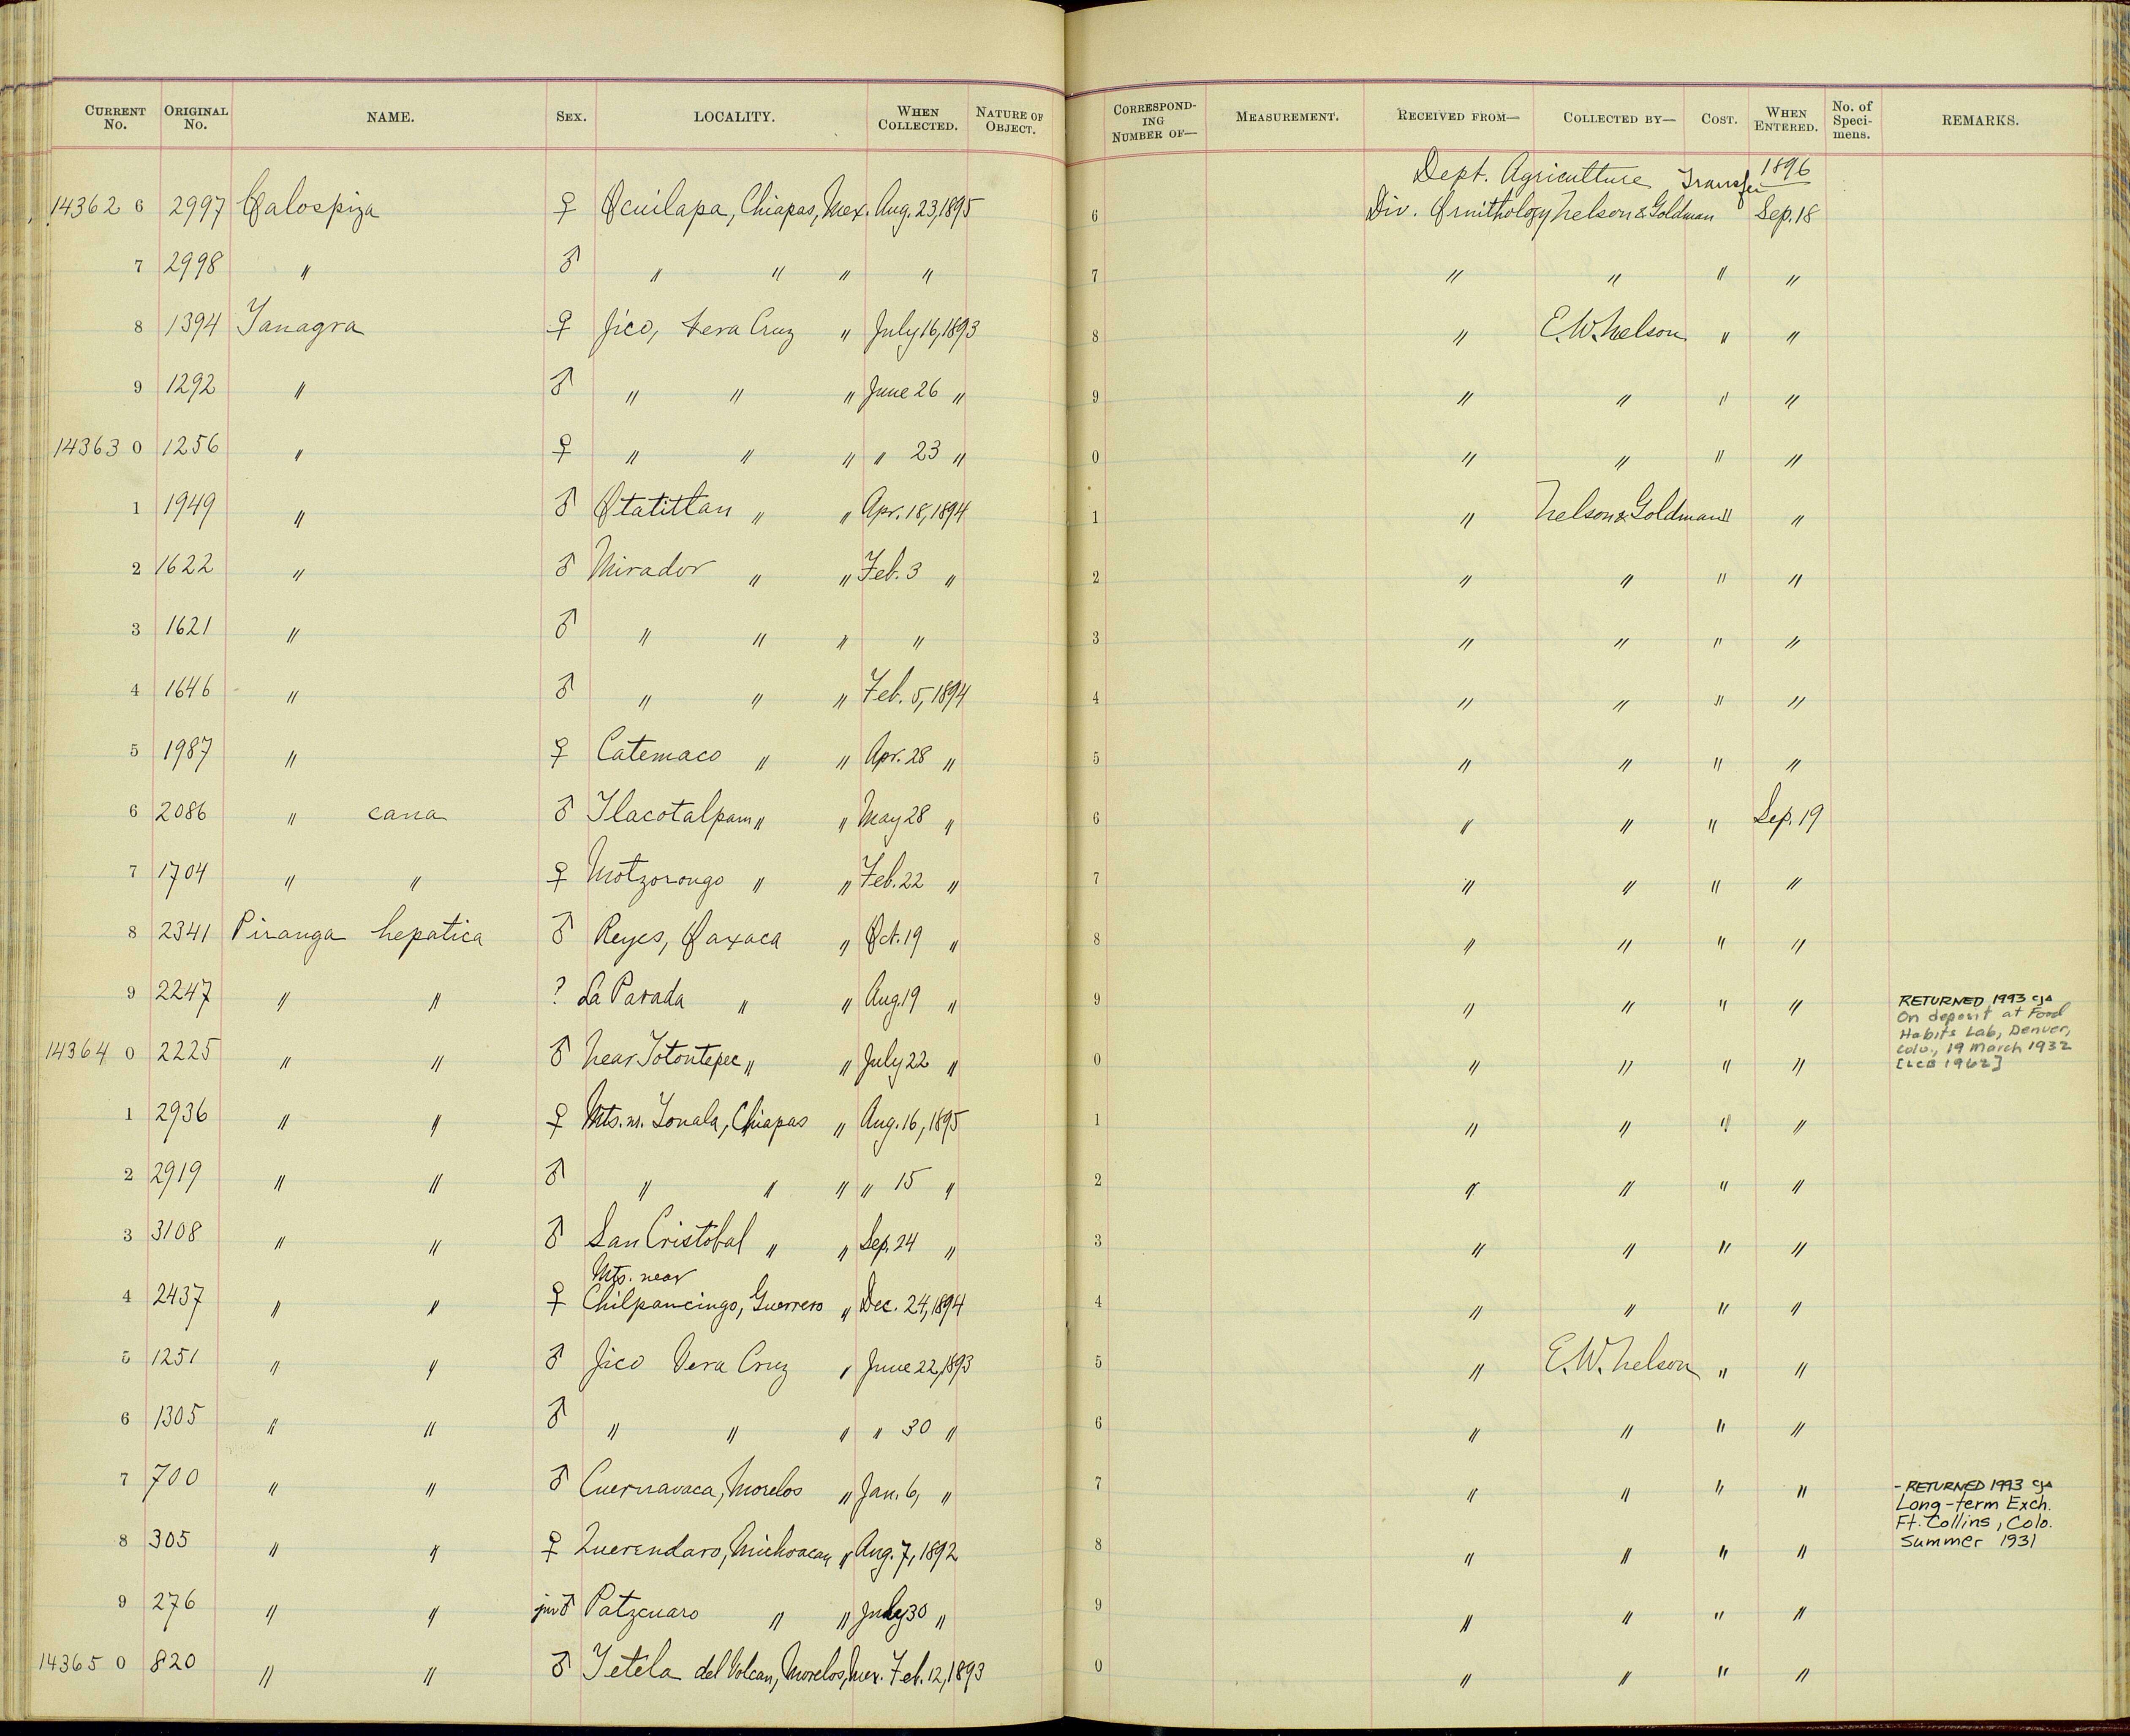 CURRENT No. ORIGINAL No. NAME. SEX. LOCALITY. WHEN COLLECTED. NATURE OF OBJECT. CORRESPONDING NUMBER OF— MEASUREMENT. RECEIVED FROM— COLLECTED BY— COST. WHEN ENTERED. No. of Specimens. REMARKS.
Dept. Agriculture Transfer 1896
14362 6 2997 Calospiza ♀ Ocuilapa, Chiapas, Mex. Aug. 23, 1895 6 Div. Ornithology Nelson & Goldman Sep. 18
7 2998 " ♂ " " " " 7 " " " "
8 1394 Tanagra ♀ Jico, Vera Cruz " July 16, 1893 8 " E.W. Nelson " "
9 1292 " ♂ " " " June 26 " 9 " " " "
14363 0 1256 " ♀ " " " " 23 " 0 " " " "
1 1949 " ♂ Otatitlan " " Apr. 18, 1894 1 " Nelson & Goldman " "
2 1622 " ♂ Mirador " " Feb. 3 " 2 " " " "
3 1621 " ♂ " " " " 3 " " " "
4 1646 " ♂ " " " Feb. 5, 1894 4 " " " "
5 1987 " ♀ Catemaco " " Apr. 28 " 5 " " " "
6 2086 " cana ♂ Tlacotalpam " " May 28 " 6 " " " Sep. 19
7 1704 " " ♀ Motzorongo " " Feb. 22 " 7 " " " "
8 2341 Piranga hepatica ♂ Reyes, Oaxaca " Oct. 19 " 8 " " " "
9 2247 " " ? La Parada " " Aug. 19 " 9 " " " " RETURNED 1993 cja
On deposit at Food
Habits Lab, Denver,
Colo., 19 March 1932
[LCB 1962]
14364 0 2225 " " ♂ Near Totontepec " " July 22 " 0 " " " "
1 2936 " " ♀ Mts. nr. Tonala, Chiapas " Aug. 16, 1895 1 " " " "
2 2919 " " ♂ " " " " 15 " 2 " " " "
3 3108 " " ♂ San Cristobal " " Sep. 24 " 3 " " " "
Mts. near
4 2437 " " ♀ Chilpancingo, Guerrero " Dec. 24, 1894 4 " " " "
5 1251 " " ♂ Jico Vera Cruz " June 22, 1893 5 " E.W. Nelson " "
6 1305 " " ♂ " " " " 30 " 6 " " " "
7 700 " " ♂ Cuernavaca, Morelos " Jan. 6, " 7 " " " " - RETURNED 1993 cja
Long-term Exch.
Ft. Collins, Colo.
Summer 1931
8 305 " " ♀ Querendaro, Michoacan " Aug. 7, 1892 8 " " " "
9 276 " " juv ♂ Patzcuaro " " July 30 " 9 " " " "
14365 0 820 " " ♂ Tetela del Volcan, Morelos, Mex. Feb. 12, 1893 0 " " " "